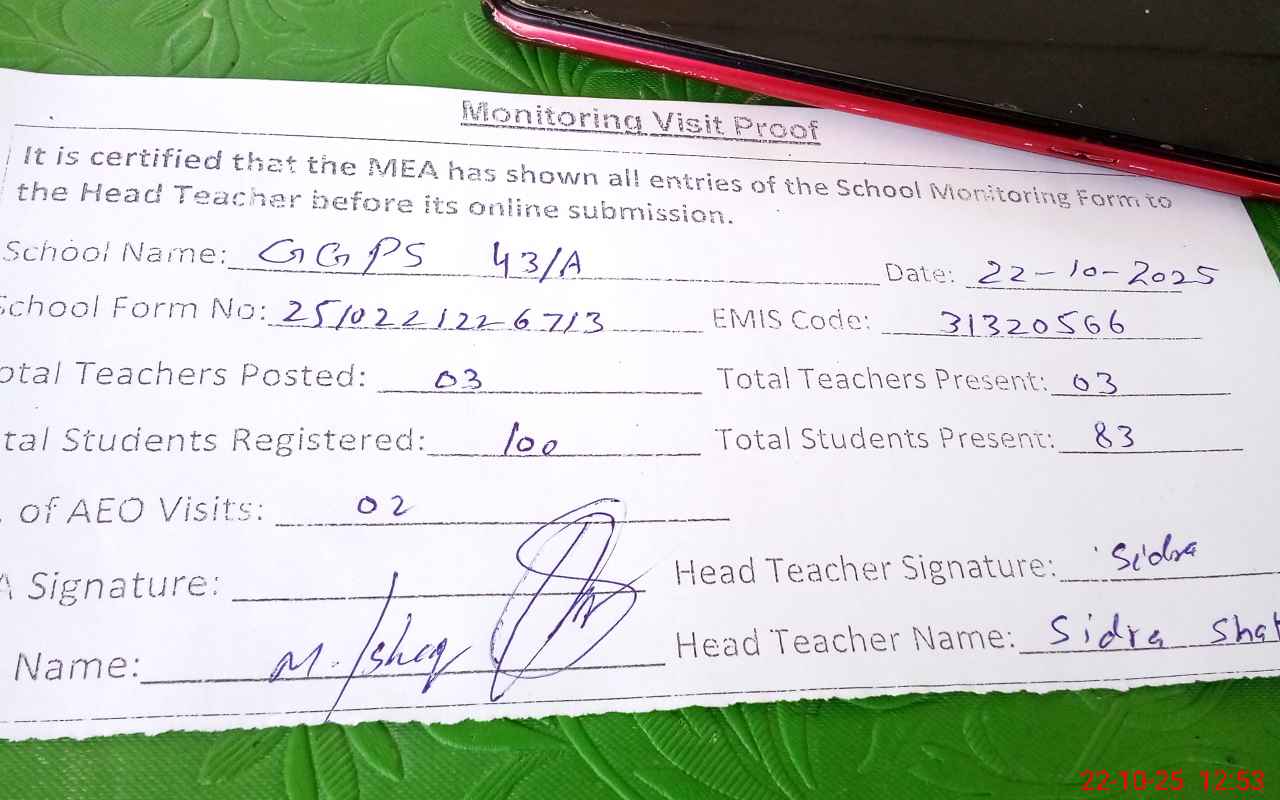 Monitoring Visit Proof
It is certified that the MEA has shown all entries of the School Monitoring Form to
the Head Teacher before its online submission.
School Name: GGPS 43/A Date: 22-10-2025
School Form No: 2510221226713 EMIS Code: 31320566
otal Teachers Posted: 03 Total Teachers Present: 03
tal Students Registered: 100 Total Students Present: 83
. of AEO Visits: 02
A Signature: Head Teacher Signature: Sidra
Name: M. Ishaq Head Teacher Name: Sidra Shah
22-10-25 12:53